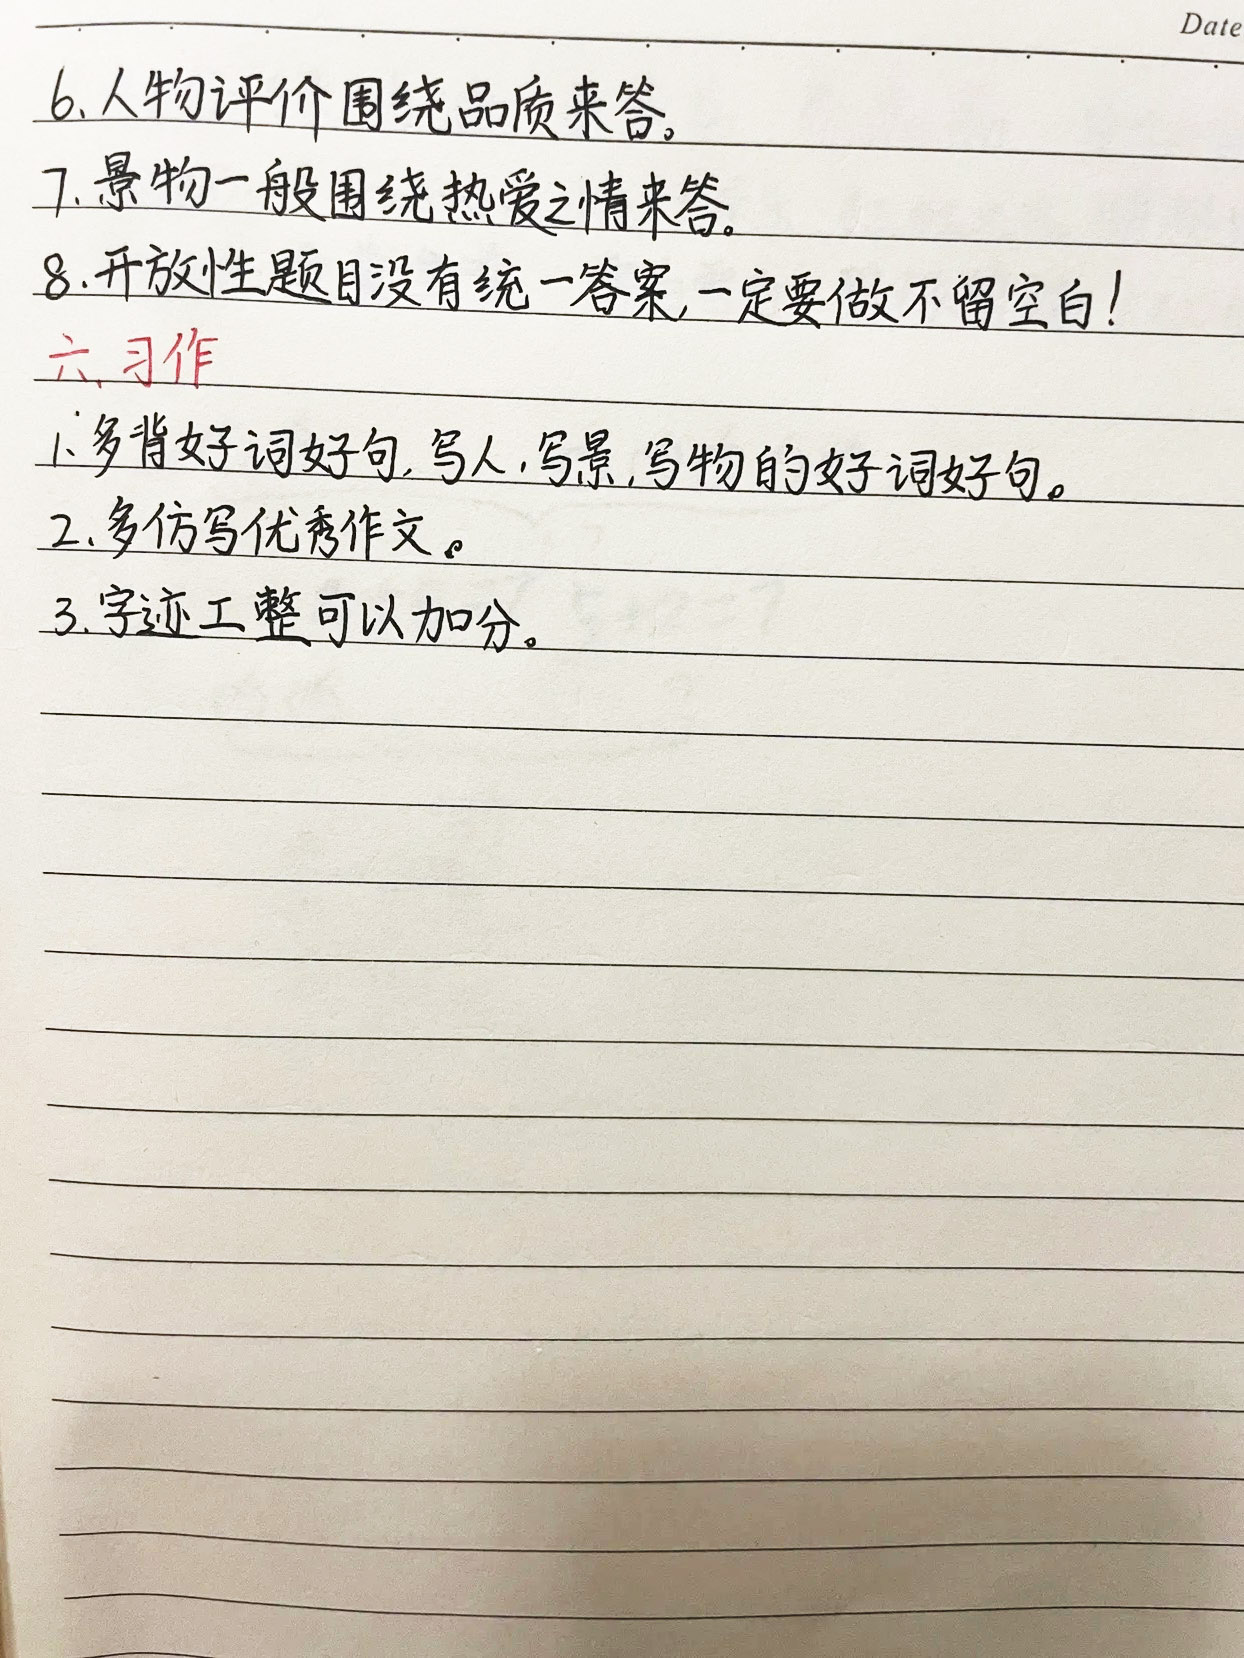 Date
6、人物评价围绕品质来答。
7、景物一般围绕热爱之情来答。
8、开放性题目没有统一答案,一定要做不留空白!
六、习作
1、多背好词好句,写人,写景,写物的好词好句。
2、多仿写优秀作文。
3、字迹工整可以加分。